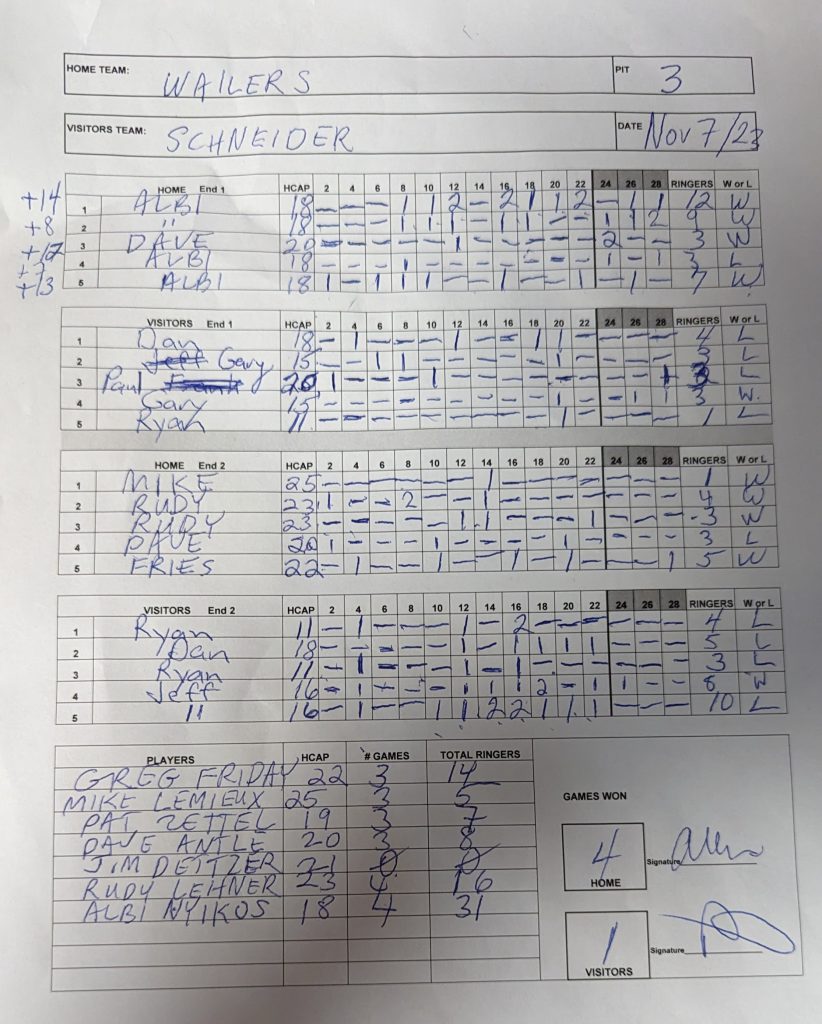 HOME TEAM: WAILERS PIT 3
VISITORS TEAM: SCHNEIDER DATE Nov 7/23
HOME End 1 HCAP 2 4 6 8 10 12 14 16 18 20 22 24 26 28 RINGERS W or L
+14 1 ALBI 18 — — — 1 1 2 — 2 1 1 2 — 1 1 12 W
+8 2 " 18 — — — 1 1 1 — 1 1 — — 1 1 2 9 W
+17 3 DAVE 20 — — — — — 1 — — — — — 2 — — 3 W
4 ALBI 18 — — — 1 — — — — — — — 1 — 1 3 L
+13 5 ALBI 18 1 — 1 1 1 — — 1 — — 1 — 1 — 7 W
VISITORS End 1 HCAP 2 4 6 8 10 12 14 16 18 20 22 24 26 28 RINGERS W or L
1 Dan 18 — 1 — — — 1 — — 1 1 — — — — 4 L
2 Jeff Gary 15 — — 1 1 — — — — — 1 — — — — 3 L
3 Paul Frank 20 1 — — — 1 — — — — — — — — 1 3 L
4 Gary 15 — — — — — — — — — 1 — — 1 1 3 W.
5 Ryan 11 — — — — — — — — — 1 — — — — 1 L
HOME End 2 HCAP 2 4 6 8 10 12 14 16 18 20 22 24 26 28 RINGERS W or L
1 MIKE 25 — — — — — — 1 — — — — — — — 1 W
2 RUDY 23 1 — — 2 — — 1 — — — — — — — 4 W
3 RUDY 23 — — — — — 1 1 — — — 1 — — — 3 W
4 DAVE 20 1 — — — 1 — — — — 1 — — — — 3 L
5 FRIES 22 — 1 — — 1 — 1 — — 1 — — — 1 5 W
VISITORS End 2 HCAP 2 4 6 8 10 12 14 16 18 20 22 24 26 28 RINGERS W or L
1 Ryan 11 — 1 — — — 1 — 2 — — — — — — 4 L
2 Dan 18 — — — — — 1 — 1 1 1 1 — — — 5 L
3 Ryan 11 — 1 — — — 1 — 1 — — — — — — 3 L
4 Jeff 16 — 1 — — — 1 1 1 2 — 1 1 — — 8 W
5 " 16 — 1 — — 1 1 2 2 1 1 1 — — — 10 L
PLAYERS HCAP # GAMES TOTAL RINGERS
GREG FRIDAY 22 3 14
MIKE LEMIEUX 25 3 5
PAT ZETTEL 19 3 7
DAVE ANTLE 20 3 8
JIM DEITZER 21 0 0
RUDY LEHNER 23 4 16
ALBI NYIKOS 18 4 31
GAMES WON
4 Signature
HOME
1 Signature
VISITORS